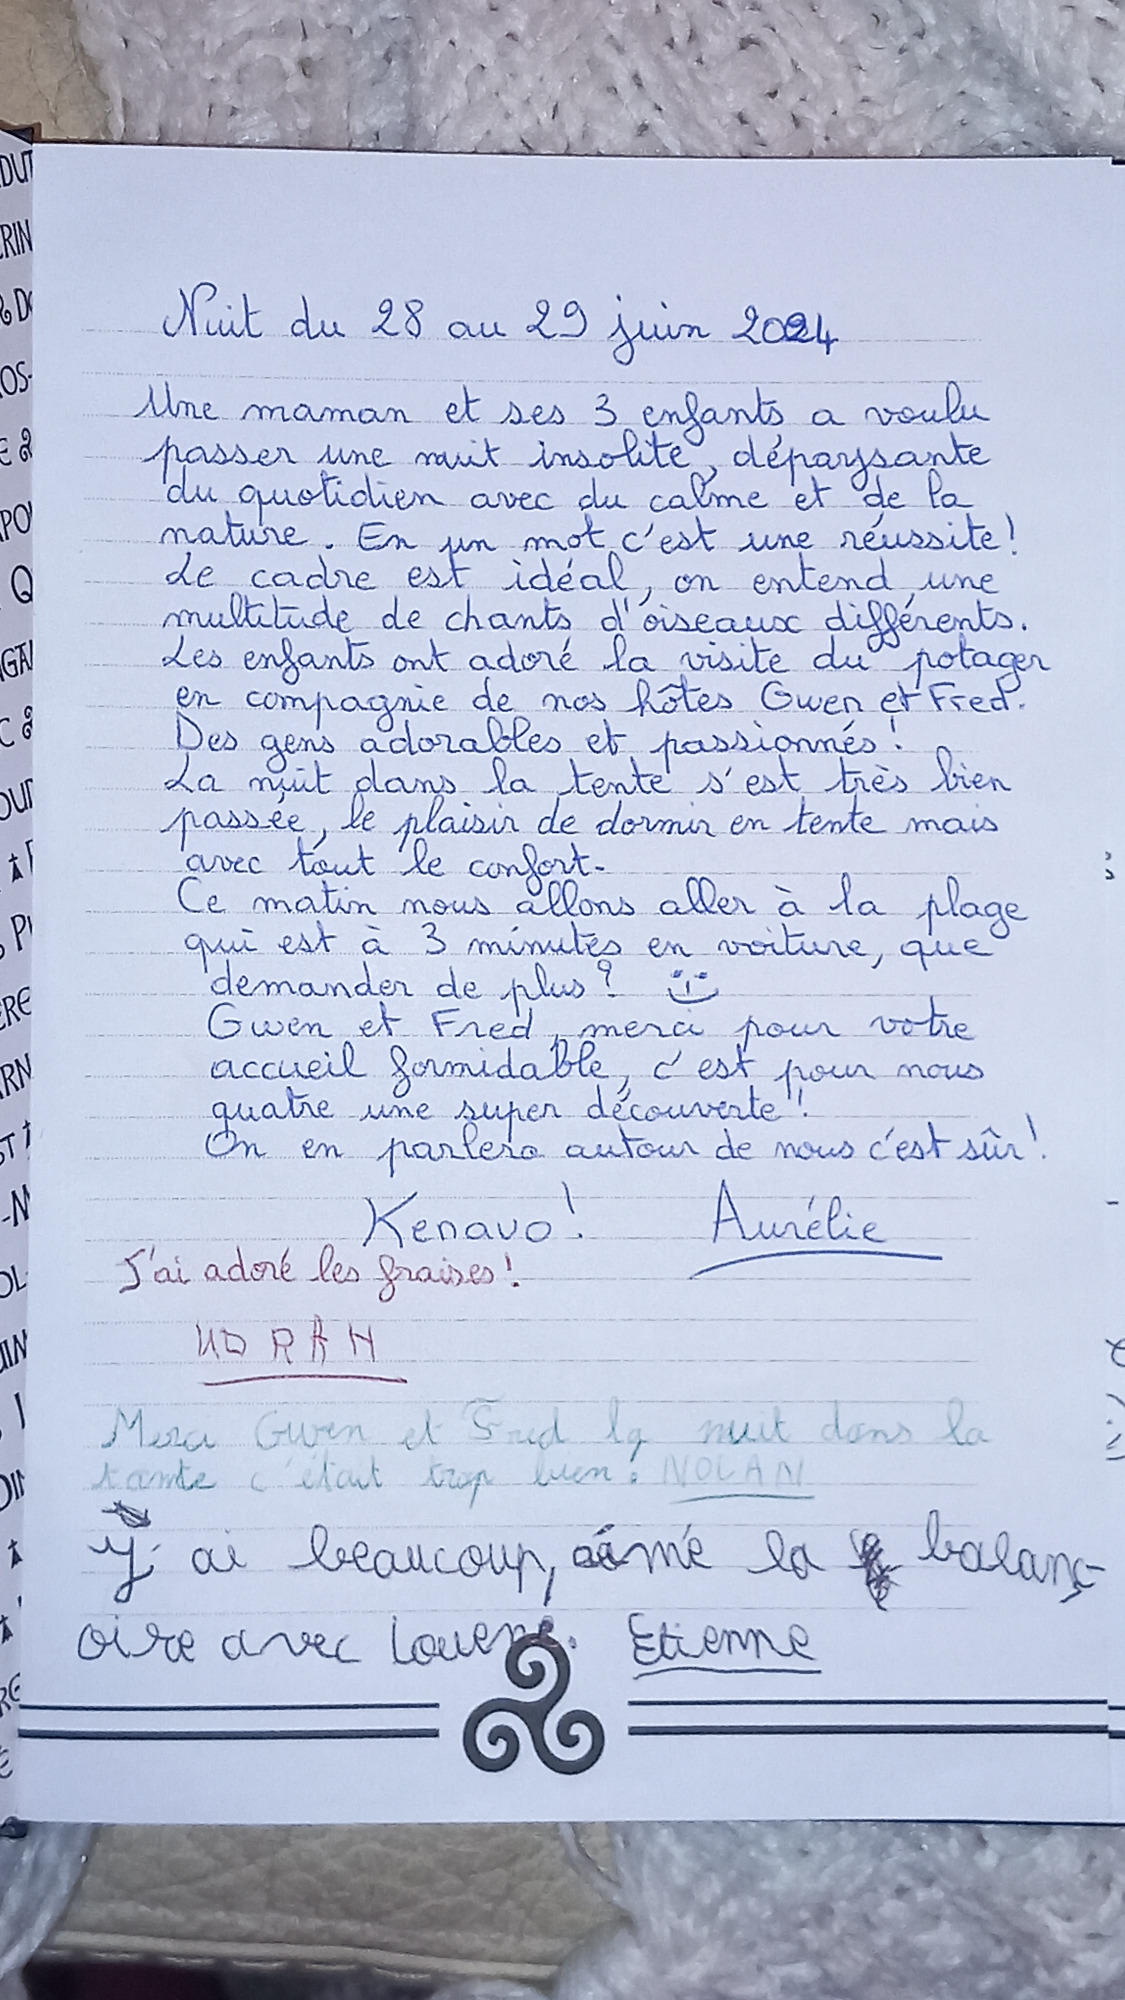 Nuit du 28 au 29 juin 2024
Une maman et ses 3 enfants a voulu
passer une nuit insolite, dépaysante
du quotidien avec du calme et de la
nature. En un mot c'est une réussite!
Le cadre est idéal, on entend une
multitude de chants d'oiseaux différents.
Les enfants ont adoré la visite du potager
en compagnie de nos hôtes Gwen et Fred.
Des gens adorables et passionnés!
La nuit dans la tente s'est très bien
passée, le plaisir de dormir en tente mais
avec tout le confort.
Ce matin nous allons aller à la plage
qui est à 3 minutes en voiture, que
demander de plus?
Gwen et Fred, merci pour votre
accueil formidable, c'est pour nous
quatre une super découverte!
On en parlera autour de nous c'est sûr!
Kenavo! Aurélie
J'ai adoré les fraises!
Merci Gwen et Fred la nuit dans la
tente c'était trop bien. NOLAN
J'ai beaucoup, aimé la balanç-
oire avec Etienne